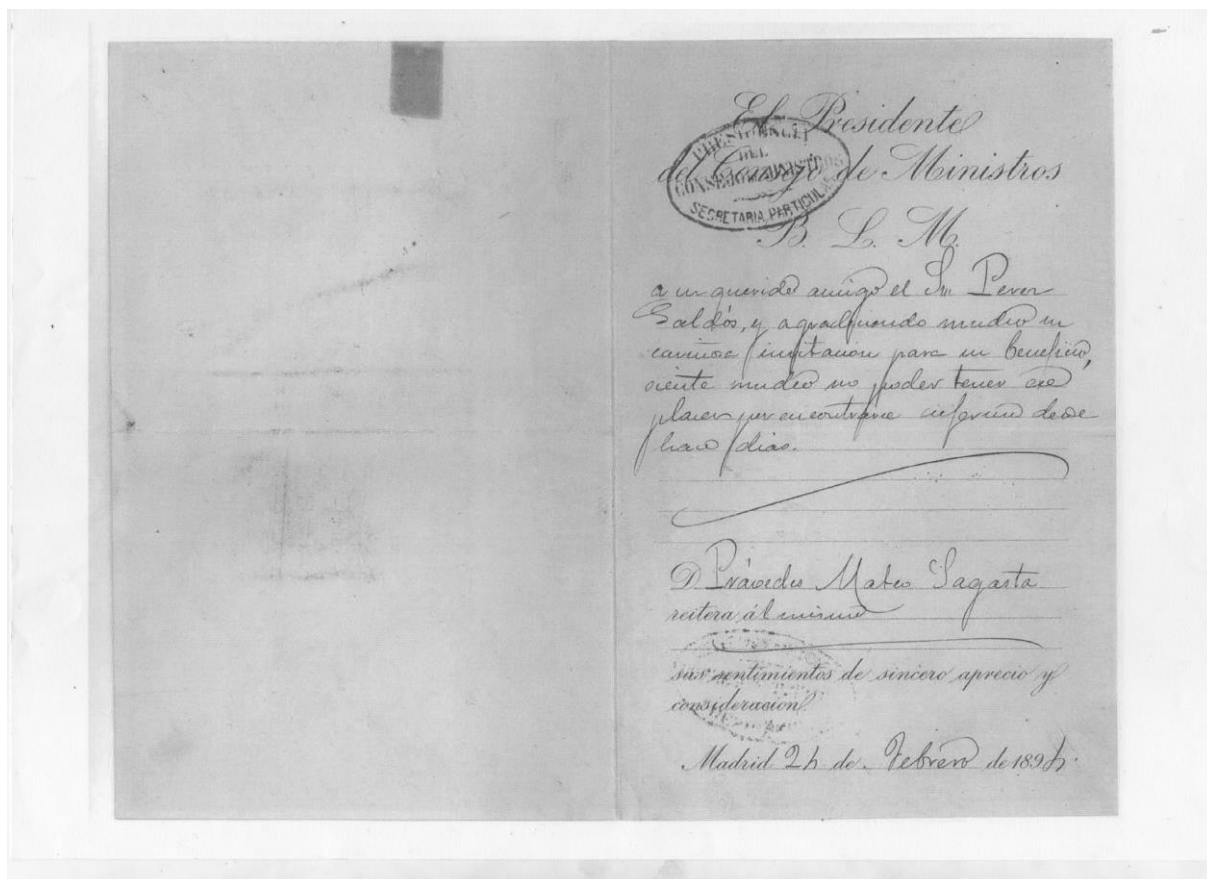 El Presidente
del Consejo de Ministros
PRESIDENCIA
DEL
CONSEJO DE MINISTROS
SECRETARIA PARTICULAR
B. L. M.
a su querido amigo el Sr. Perez
Galdós, y agradeciendo mucho su
cariñosa invitacion para su beneficio,
siente mucho no poder tener ese
placer por encontrarse enfermo desde
hace dias.
D. Práxedes Mateo Sagasta
reitera al mismo
sus sentimientos de sincero aprecio y
consideración
Madrid 24 de Febrero de 1894.